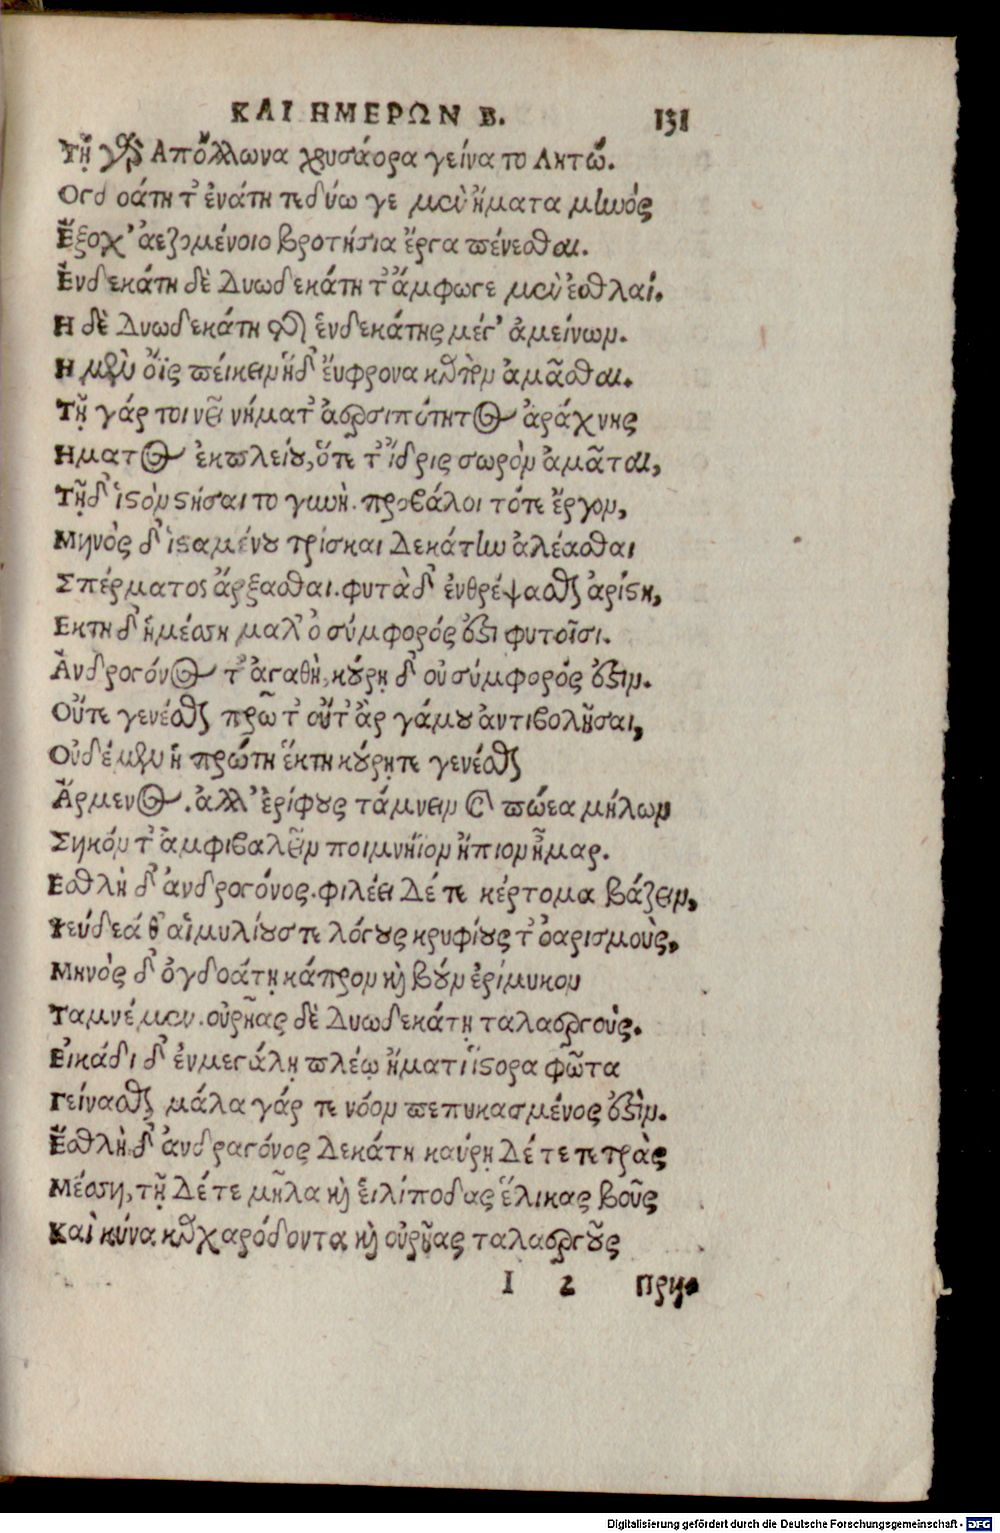 ΚΑΙ ΗΜΕΡΩΝ Β. 131
Τῇ γὰρ Ἀπόλλωνα χρυσάορα γείνατο Λητώ.
Ογδοάτη τ' ἐνάτη τε δύω γε μὲν ἤματα μηνός
Ἔξοχ' ἀεζομένοιο βροτήσια ἔργα πένεσθαι.
Ἑνδεκάτη δὲ Δυωδεκάτη τ' ἄμφωγε μὲν ἐσθλαί.
Η δὲ Δυωδεκάτη τῆς ἑνδεκάτης μέγ' ἀμείνων.
Η μὲν ὄϊς πείκειν ἠδ' ἔυφρονα καρπὸν ἀμᾶσθαι.
Τῇ γάρ τοι νεῖ νήματ' ἀερσιπότητος ἀράχνης
Ηματος ἐκ πλείου, ὅτε τ' ἴδρις σωρὸν ἀμᾶται,
Τῇ δ' ἱστὸν στήσαιτο γυνὴ. προβάλοιτό τε ἔργον,
Μηνὸς δ' ἱσταμένου τρίσκαι Δεκάτην ἀλέασθαι
Σπέρματος ἄρξασθαι. φυτὰ δ' ἐνθρέψασθαι ἀρίστη,
Εκτη δ' ἡ μέσση μαλ' ὀσύμφορός ἐστι φυτοῖσι.
Ἀνδρογόνος τ' ἀγαθὴ, κούρῃ δ' οὐ σύμφορός ἐστιν.
Οὔτε γενέσθαι πρῶτ' οὔτ' ἂρ γάμου ἀντιβολῆσαι,
Οὐδὲ μὲν ἡ πρώτη ἕκτη κούρῃ τε γενέσθαι
Ἄρμενος. ἀλλ' ἐρίφους τάμνειν καὶ πώεα μήλων
Σηκόν τ' ἀμφιβαλεῖν ποιμνήϊον ἤπιον ἦμαρ.
Εσθλὴ δ' ἀνδρογόνος. φιλέει Δέ τε κέρτομα βάζειν,
Ψεύδεά θ' αἱμυλίους τε λόγους κρυφίους τ' ὀαρισμοὺς,
Μηνὸς δ' ὀγδοάτῃ κάπρον καὶ βοῦν ἐρίμυκον
Ταμνέμεν. οὐρῆας δὲ Δυωδεκάτῃ ταλαεργούς.
Εἰκάδι δ' ἐν μεγάλῃ πλέῳ ἤματι ἵστορα φῶτα
Γείνασθαι μάλα γάρ τε νόον πεπυκασμένος ἐστὶν.
Ἔσθλὴ δ' ἀνδραγόνος Δεκάτη καύρῃ Δέ τε τετρὰς
Μέσση, τῇ Δέ τε μῆλα καὶ εἰλίποδας ἕλικας βοῦς
Καὶ κύνα καρχαρόδοντα καὶ οὐρῆας ταλαεργοὺς
I 2 Πρη.